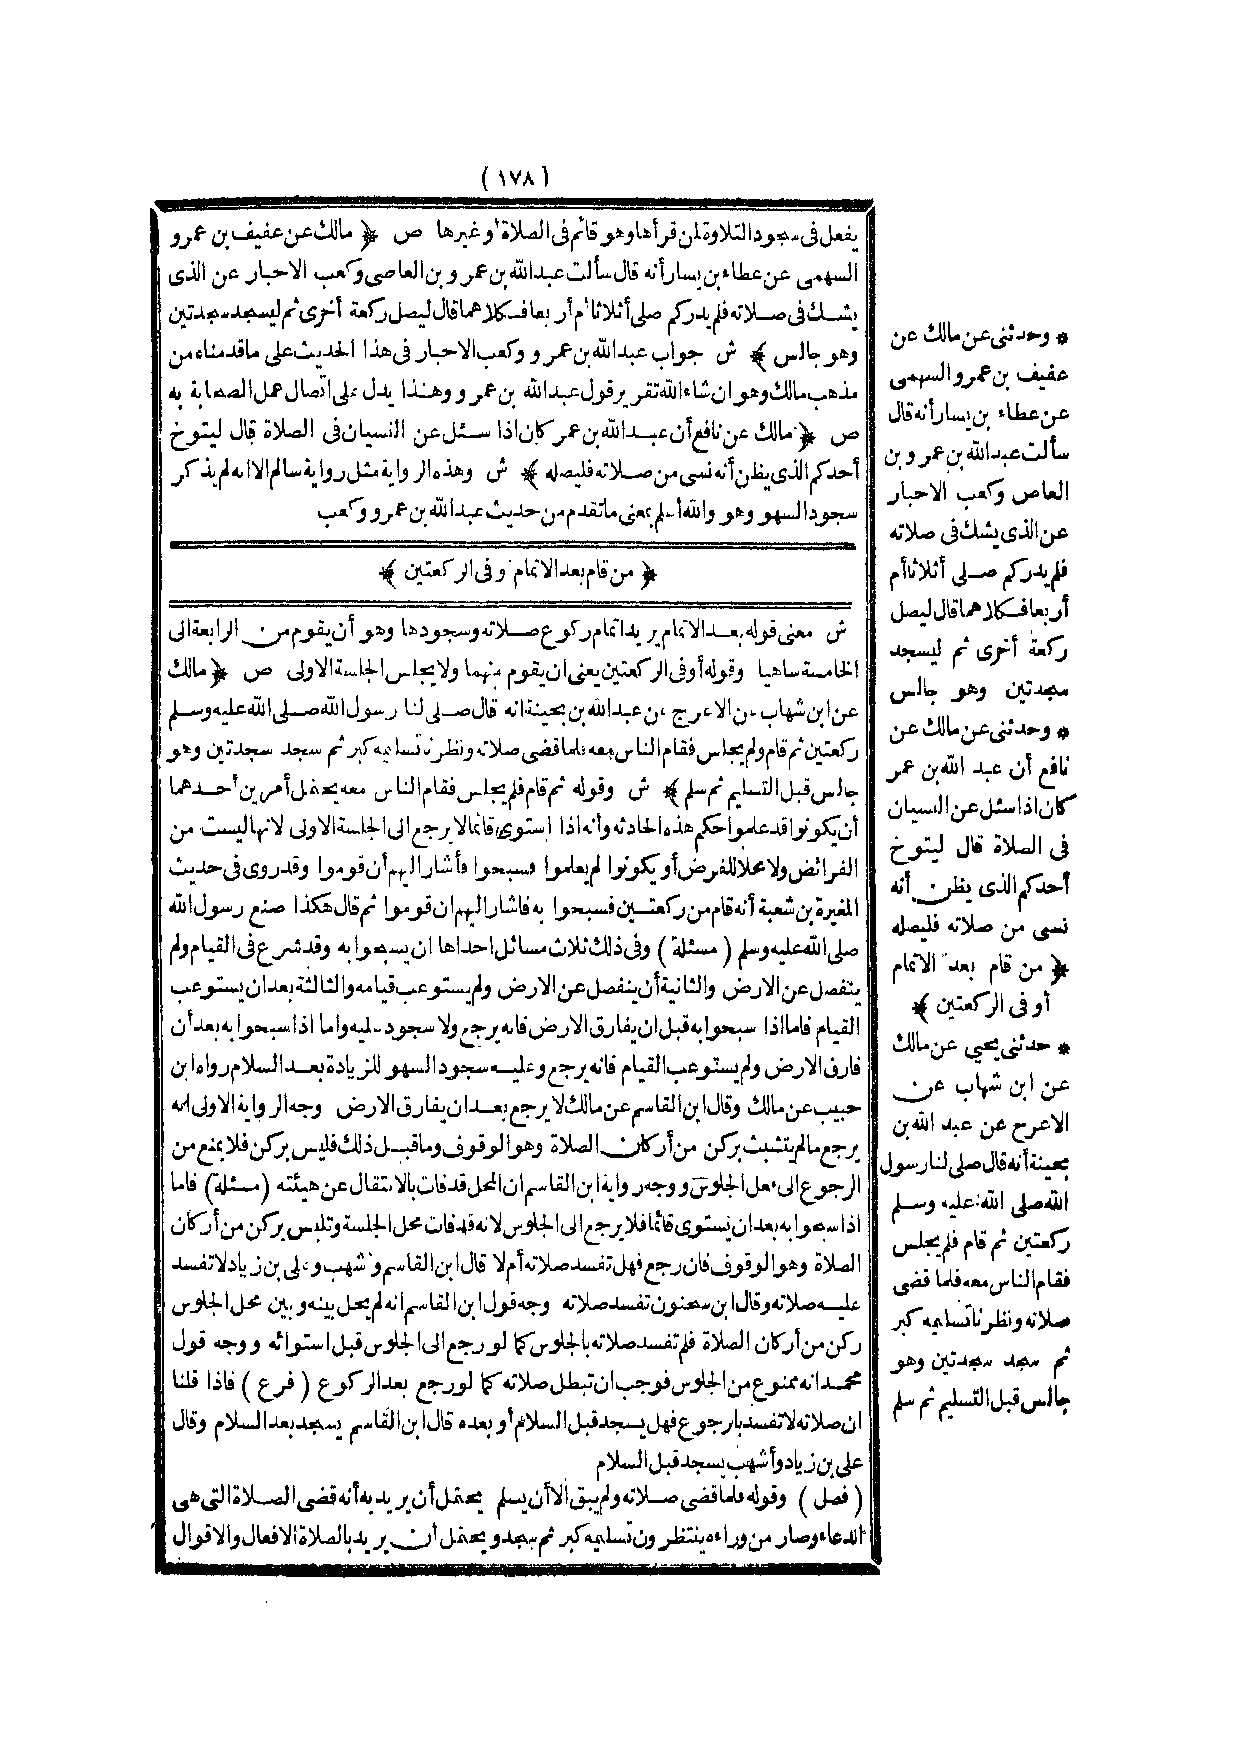 (١٧٨)
يفعل فى سجود التلاوة لمن قرأها وهو قائم فى الصلاة أو غيرها ص ﴿ مالك عن عفيف بن عمرو
السهمى عن عطاء بن يسار أنه قال سألت عبد الله بن عمرو بن العاصى وكعب الاحبار عن الذى
يشك فى صلاته فلم يدركم صلى أثلاثا أم أربعا فكلاهما قال ليصل ركعة أخرى ثم ليسجد سجدتين
وهو جالس ﴾ ش جواب عبد الله بن عمرو وكعب الاحبار فى هذا الحديث على ما قدمناه من
مذهب مالك وهو ان شاء الله تقرير قول عبد الله بن عمرو وهذا يدل على اتصال عمل الصحابة به
ص ﴿ مالك عن نافع أن عبد الله بن عمر كان اذا سئل عن النسيان فى الصلاة قال ليتوخ
أحدكم الذى يظن أنه نسى من صلاته فليصله ﴾ ش وهذه الرواية مثل رواية سالم الا انه لم يذكر
سجود السهو وهو والله أعلم بمعنى ما تقدم من حديث عبد الله بن عمرو وكعب
﴿ من قام بعد الاتمام وفى الركعتين ﴾
ش معنى قوله بعد الاتمام يريد اتمام ركوع صلاته وسجودها وهو أن يقوم من الرابعة الى
الخامسة ساهيا وقوله أو فى الركعتين يعنى ان يقوم منهما ولا يجلس الجلسة الاولى ص ﴿ مالك
عن ابن شهاب عن الاعرج عن عبد الله بن بحينة انه قال صلى لنا رسول الله صلى الله عليه وسلم
ركعتين ثم قام ولم يجلس فقام الناس معه فلما قضى صلاته ونظرنا تسليمه كبر ثم سجد سجدتين وهو
جالس قبل التسليم ثم سلم ﴾ ش وقوله ثم قام فلم يجلس فقام الناس معه يحتمل أمرين أحدهما
أن يكونوا قد علموا حكم هذه الحادثة وأنه اذا استوى قائما لا يرجع الى الجلسة الاولى لانها ليست من
الفرائض ولا محلا للفرض أو يكونوا لم يعلموا فسبحوا فأشار اليهم أن قوموا وقد روى فى حديث
المغيرة بن شعبة أنه قام من ركعتين فسبحوا به فاشار اليهم ان قوموا ثم قال هكذا صنع رسول الله
صلى الله عليه وسلم (مسئلة) وفى ذلك ثلاث مسائل احداها ان يسبحوا به وقد شرع فى القيام ولم
ينفصل عن الارض والثانية أن ينفصل عن الارض ولم يستوعب قيامه والثالثة بعد ان يستوعب
القيام فاما اذا سبحوا به قبل ان يفارق الارض فانه يرجع ولا سجود عليه واما اذا سبحوا به بعد أن
فارق الارض ولم يستوعب القيام فانه يرجع وعليه سجود السهو للزيادة بعد السلام رواه ابن
حبيب عن مالك وقال ابن القاسم عن مالك لا يرجع بعد ان يفارق الارض وجه الرواية الاولى انه
يرجع مالم يتشبث بركن من أركان الصلاة وهو الوقوف وما قبل ذلك فليس بركن فلا يمنع من
الرجوع الى فعل الجلوس ووجه رواية ابن القاسم ان المحل قد فات بالانتقال عن هيئته (مسئلة) فاما
اذا سبحوا به بعد ان يستوى قائما فلا يرجع الى الجلوس لانه قد فات محل الجلسة وتلبس بركن من أركان
الصلاة وهو الوقوف فان رجع فهل تفسد صلاته أم لا قال ابن القاسم وأشهب وعلى بن زياد لا تفسد
عليه صلاته وقال ابن سحنون تفسد صلاته وجه قول ابن القاسم انه لم يحل بينه وبين محل الجلوس
ركن من أركان الصلاة فلم تفسد صلاته بالجلوس كما لو رجع الى الجلوس قبل استوائه ووجه قول
محمد انه ممنوع من الجلوس فوجب ان تبطل صلاته كما لو رجع بعد الركوع (فرع) فاذا قلنا
ان صلاته لا تفسد بالرجوع فهل يسجد قبل السلام أو بعده قال ابن القاسم يسجد بعد السلام وقال
على بن زياد وأشهب يسجد قبل السلام
(فصل) وقوله فلما قضى صلاته ولم يبق الا أن يسلم يحتمل أن يريد به أنه قضى الصلاة التى هى
الدعاء وصار من وراءه ينتظرون تسليمه كبر ثم سجد ويحتمل أن يريد بالصلاة الافعال والاقوال
* وحدثنى عن مالك عن
عفيف بن عمرو السهمى
عن عطاء بن يسار أنه قال
سألت عبد الله بن عمرو بن
العاص وكعب الاحبار
عن الذى يشك فى صلاته
فلم يدركم صلى أثلاثا أم
أربعا فكلاهما قال ليصل
ركعة أخرى ثم ليسجد
سجدتين وهو جالس
* وحدثنى عن مالك عن
نافع أن عبد الله بن عمر
كان اذا سئل عن النسيان
فى الصلاة قال ليتوخ
أحدكم الذى يظن أنه
نسى من صلاته فليصله
﴿ من قام بعد الاتمام
أو فى الركعتين ﴾
* حدثنى يحيى عن مالك
عن ابن شهاب عن
الاعرج عن عبد الله بن
بحينة أنه قال صلى لنا رسول
الله صلى الله عليه وسلم
ركعتين ثم قام فلم يجلس
فقام الناس معه فلما قضى
صلاته ونظرنا تسليمه كبر
ثم سجد سجدتين وهو
جالس قبل التسليم ثم سلم